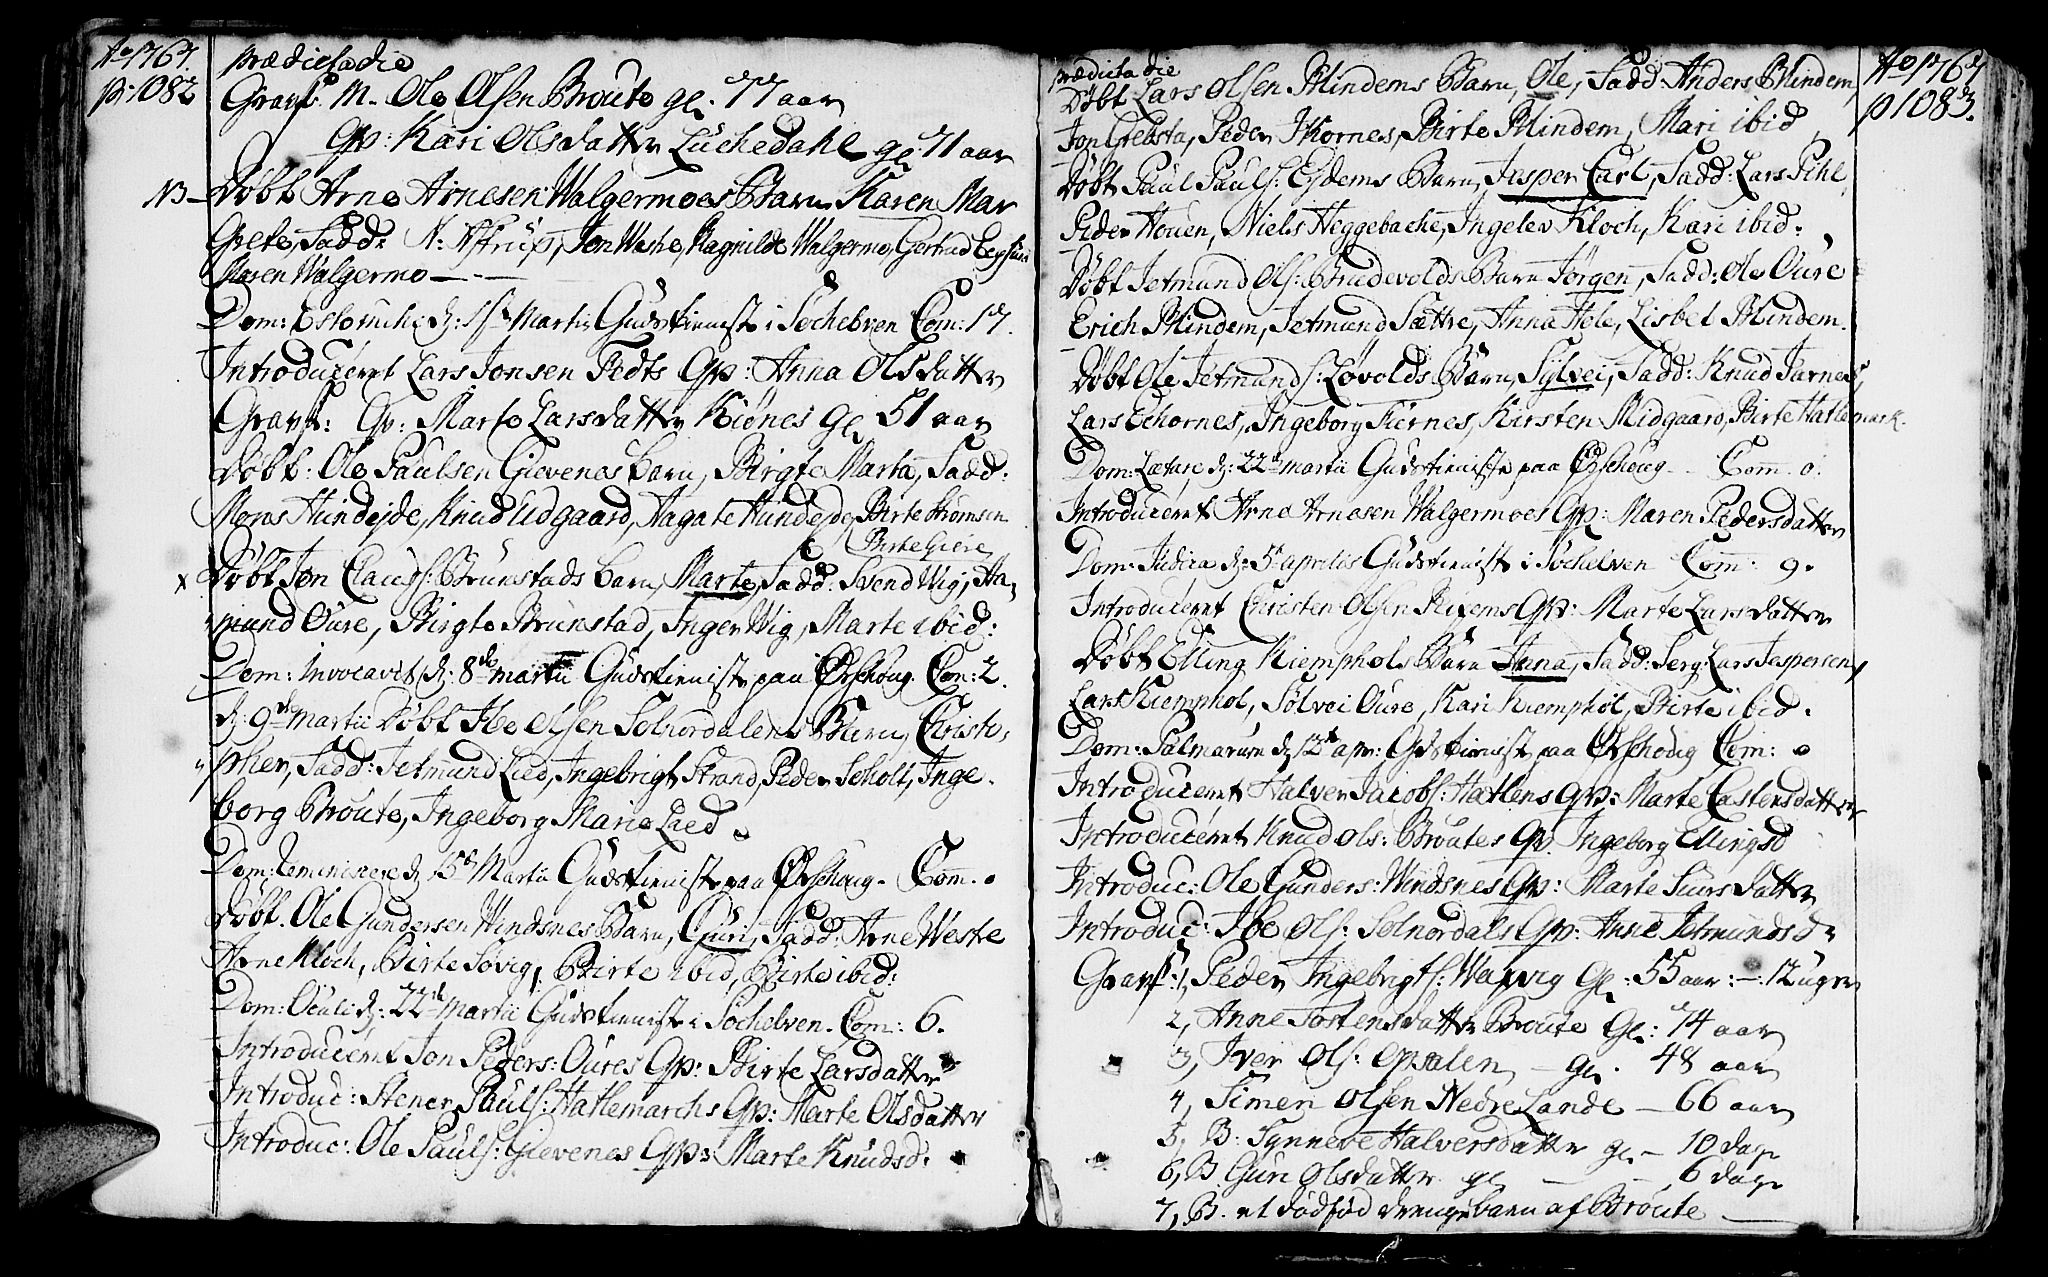 Ao 1767.
p. 1082
prædicta die
Gravf: M. Ole Olsen Broute gl. 77 aar
Qv: Kari Olsdatter Luchedahl gl. 71 aar
NB Døbt Arne Arnesen Walgermoes Barn Karen Mar
Grete, Fadd: N: Astrup, Jon Weske, Ragnilde Walgermo, Gertrud
Maren Walgermo
Dom: Estomihi d: 1ste Martii Gudstieniste i Søchelven Com: 17.
Introduceret Lars Jonsen Fedts Qv: Anna Olsdatter
Gravf: Qv: Marte Larsdatter Kiønes gl 51 aar
Døbt: Ole Paulsen Gievenes barn, Birgte Marta, Fadd:
Mons Hundejde, Knud Udgaard, Aagate Hundejde, Birte Strømsem
Birte Giere
x Døbt Jon Clausf: Brunstads barn, Marte, Fadd: Svend Wig, Aa-
mund Oure, Birgte Brunstad, Inger Wig, Marte ibid:
Dom: Invocavit d: 8de martii Gudstieniste paa Ørschoug. Com: 2.
d: 9de martii Døbt Ibe Olsen Solnordalens Barn, Christo-
pher, Fadd: Jetmund Lied, Ingebrigt Strand, Peder Scholt, Inge-
borg Broute, Ingeborg Marie Lied.
Dom: Reminiscere d 15de Martii Gudstieniste paa Ørschoug. Com. 0
Døbt. Ole Gundersen Windsnes Barn, Guri, Fadd: Arne Weske
Arne Kloch, Birte Søvig, Birte ibid, Birte ibid:
Dom: Oculi d: 22de martii Gudstieniste i Søchelven. Com: 6.
Introduceret Jon Peders: Oures Qv: Birte Larsdatter
Introduc: Stener Paulf: Hatlemarchs Qv: Marte Olsdatter
Introduc: Ole Paulf: Gievenes Qv: Marte Knudsd.
Ao 1767
p 1083.
prædicta die
Døbt Lars Olsen Blindems Barn, Ole, Fadd: Anders Blindem,
Jon Grebsta, Peder Ikornes, Birte Blindem, Mari ibid
Døbt Paul Paulf: Esdems Barn, Jesper Carl, Fadd: Lars Pihl,
Peder Houen, Niels Heggebache, Ingelev Kloch, Kari ibid.
Døbt Jetmund Olf: Brudevolds Barn Jørgen, Fadd: Ole Oure
Erich Blindem, Jetmund Sættre, Anna Hole, Lisbet Blindem.
Døbt Ole Jetmundf: Løvolds Barn, Sylvei, Fadd: Knud Jarnes,
Lars Echornes, Ingeborg Kiernes, Kirsten Midgaard, Birte Hatlemark.
Dom: Lætare d: 22de martii Gudstieniste paa Ørschoug Com. 0.
Introduceret Arne Arnesen Walgermoes Qv: Maren Pedersdatter
Dom: Judica d: 5te aprilis Gudstieniste i Søchelven Com: 9.
Introduceret Christen Olsen Rixems Qv: Marte Larsdatter
Døbt Elling Kiemphols Barn Anna, Fadd: Serg: Lars Jespersen,
Lars Kiemphol, Sølvei Oure, Kari Kiemphol, Birte ibid.
Dom: Palmarum d 12te apr: Gudstieniste paa Ørschoug Com: 0
Introduceret Halver Jacobf: Hatlens Qv: Marte Castensdatter
Introduceret Knud Ols: Broutes Qv Ingeborg Ellingsd
Introduc: Ole Gunders: Windsnes Qv: Marte Siursdatter
Introduc: Ibe Olf: Solnordals Qv: Anne Jetmundsd:
Gravf: 1, Peder Ingebrigtf: Wafvig gl: 55 aar: 12 uger
2, Anne Tostensdatter Broute gl: 74 aar
3, Iver Olf: Opsalen gl. 48 aar
4, Simen Olsen Nedre Lande 66 aar
5, B: Synneve Halversdatter gl 10 dage
6, B Guri Olsdatter gl 6 dage
7, B. et dødfød drengebarn af Broute